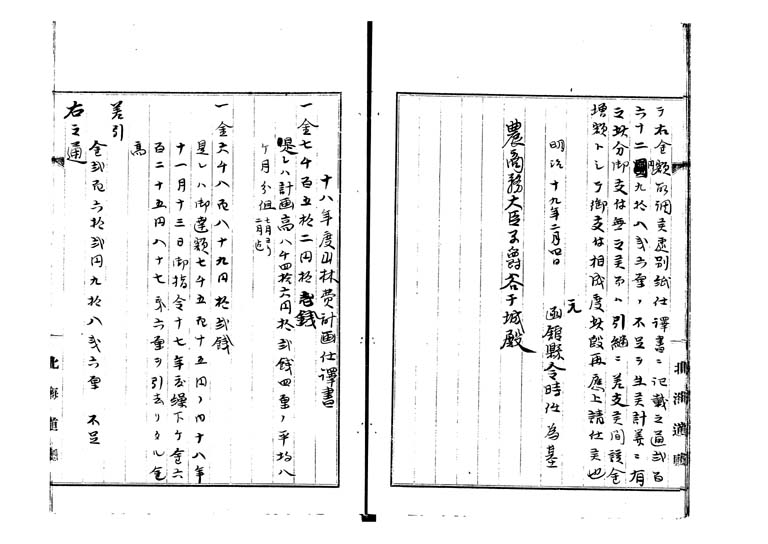 ヲ右金額取調候処別紙仕譯書ニ記載之通弐百
六十二円九拾八弐六厘ノ不足ヲ生候計算ニ有
之此分御支拂無之候而ハ引継ニ差支候間該金
増額トシテ御支拂相成度此段再應上請仕候也
函館縣令時任為基
明治十九年二月四日
農商務大臣子爵谷干城殿
十八年度山林費計画仕譯書
一金七千百五拾二円拾壱銭
是レハ計画高八千四拾六円拾弐銭四厘ノ平均八
ケ月分但七月ヨリ二月迄
一金六千八百八十九円拾弐銭
是レハ御達額七千五百十五円ノ内十八年
十一月十三日御指令十七年度繰下ケ金六
百二十五円八十七弐六厘ヲ引去リタル金
高
差引
金弐百六拾弐円九拾八弐六厘 不足
右之通
北海道廳
北海道廳